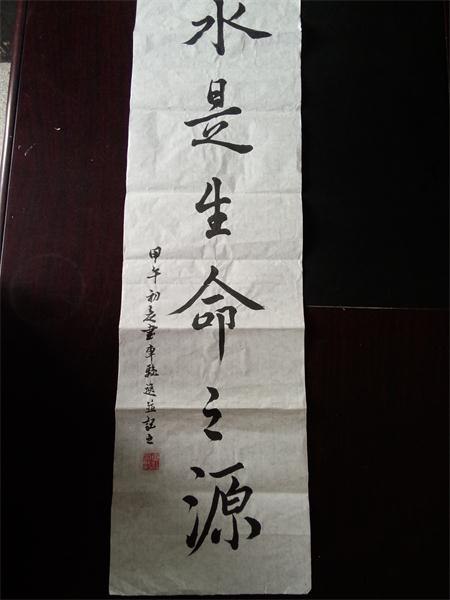 水是生命之源
甲午初夏書車 並記之